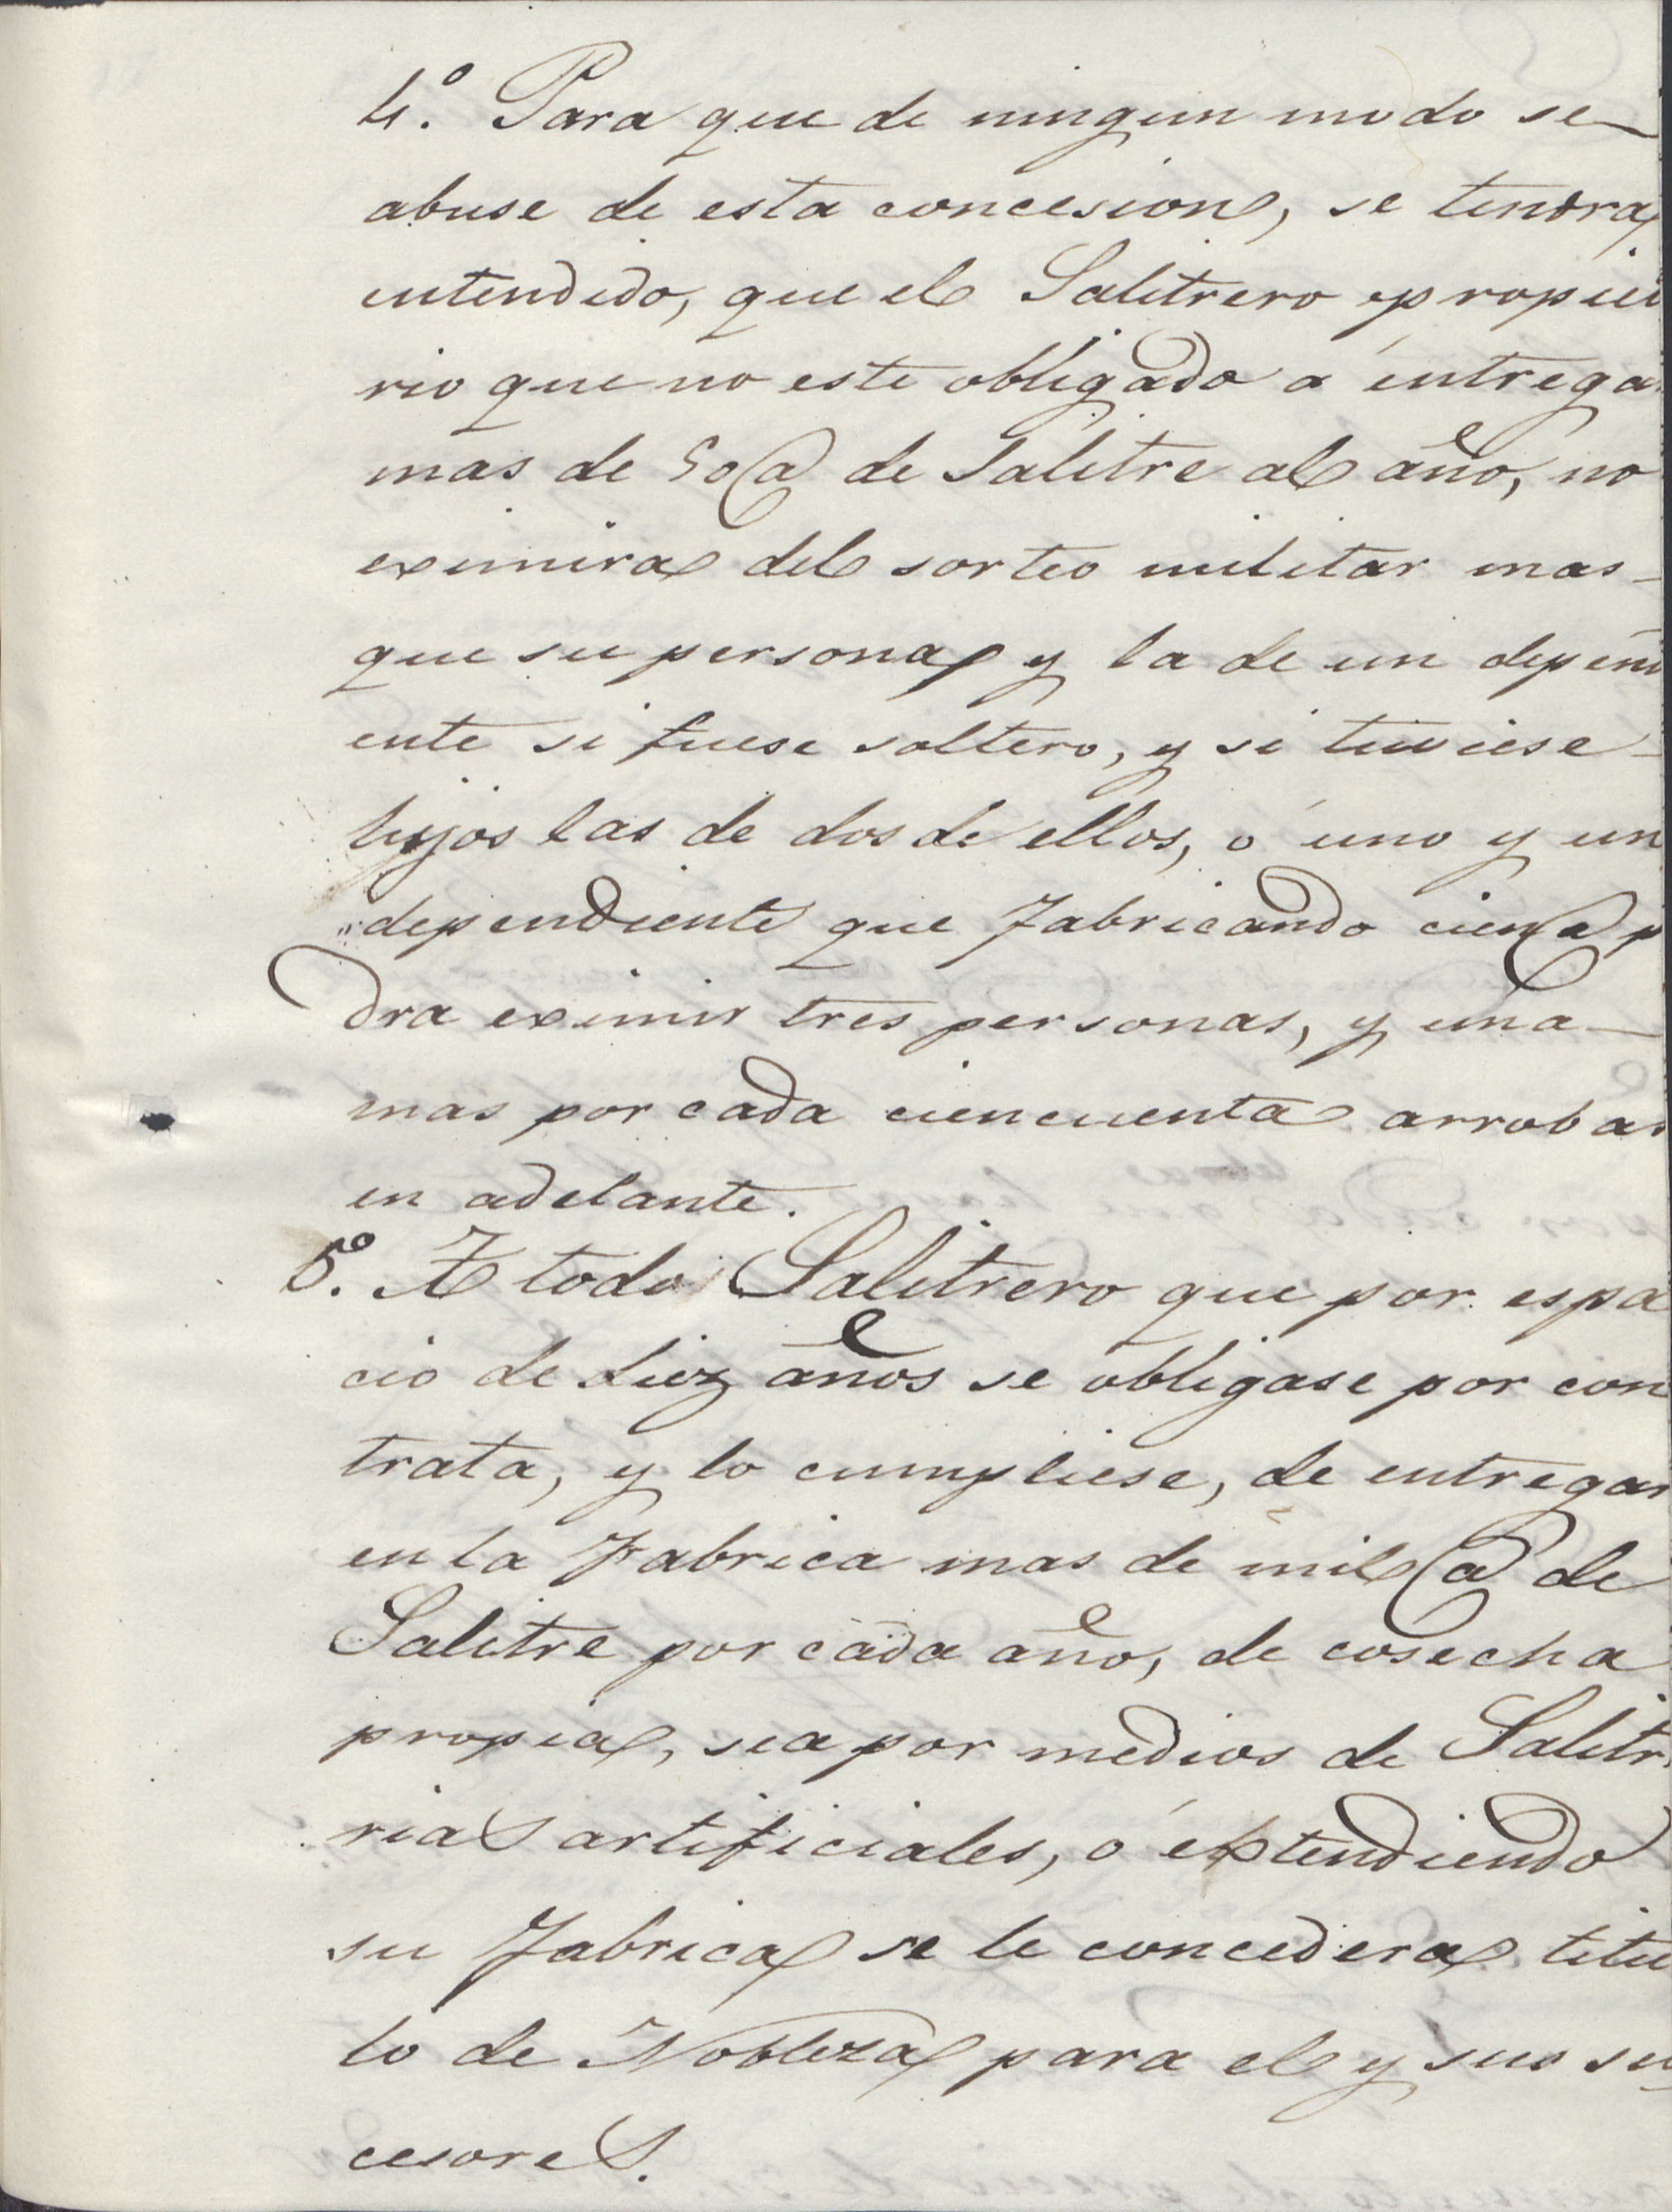 4.º Para que de ningun modo se
abuse de esta concesion, se tendra
entendido, que el Salitrero propieta
rio que no este obligado á entregar
mas de 50 @ de Salitre al año, no
eximira del sorteo militar mas
que su persona y la de un dependi
ente si fuese soltero, y si tuviese
hijos las de dos de ellos, ó uno y un
dependiente que fabricando cien @ po
dra eximir tres personas, y una
mas por cada ciencuenta arrobas
en adelante.
5.º A todo Salitrero que por espa
cio de diez años se obligase por con
trata, y lo cumpliese, de entregar
en la Fabrica mas de mil @ de
Salitre por cada año, de cosecha
propia, sea por medios de Salitre
rias artificiales, ó extendiendo
su fabrica se le concedera titu
lo de Nobleza para el y sus su
cesores.